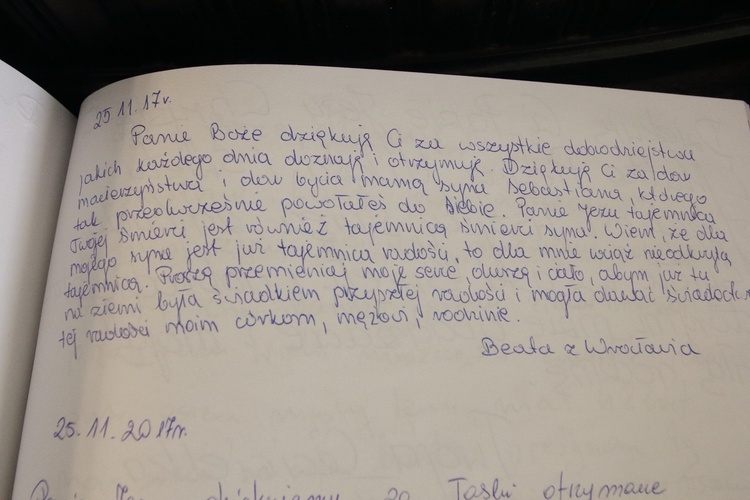 25 11. 17r.
Panie Boże dziękuję Ci za wszystkie dobrodziejstwa
jakich każdego dnia doznaję i otrzymuję. Dziękuję Ci za dar
macierzyństwa i dar bycia mamą syna Sebastiana, którego
tak przedwcześnie powołałeś do siebie. Panie Jezu tajemnicą
Twojej śmierci jest również tajemnicą śmierci syna. Wiem, że dla
mojego syna jest już tajemnicą radości, to dla mnie wciąż nieodkrytą
tajemnicą. Proszę przemieniaj moje serce, duszę i ciało, abym już tu
na ziemi była świadkiem przyszłej radości i mogła dawać świadectwo
tej radości moim córkom, mężowi, rodzinie.
Beata z Wrocławia
25. 11. 2017r.
dziękujemy za łaski otrzymane